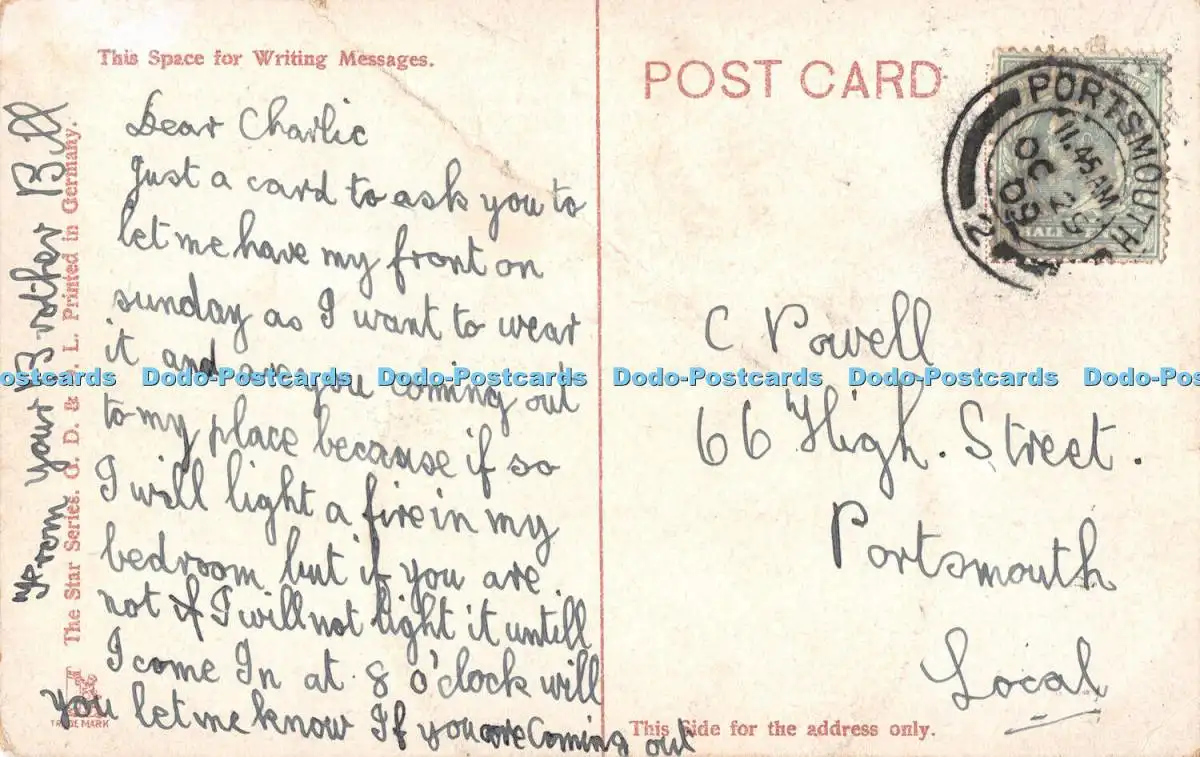 This Space for Writing Messages.
Dear Charlie
Just a card to ask you to
let me have my front on
sunday as I want to wear
it and are you coming out
to my place because if so
I will light a fire in my
bedroom but if you are
not if I will not light it untill
I come In at 8 o'clock will
you let me know If you are Coming out
From your Brother Bill
The Star Series. G. D. & D. L. Printed in Germany.
TRADE MARK
POST CARD
PORTSMOUTH
11.45 AM
OC 29
09
2
HALF
C Powell
66 High. Street.
Portsmouth
Local
This Side for the address only.
Dodo-Postcards Dodo-Postcards Dodo-Postcards Dodo-Postcards Dodo-Postcards